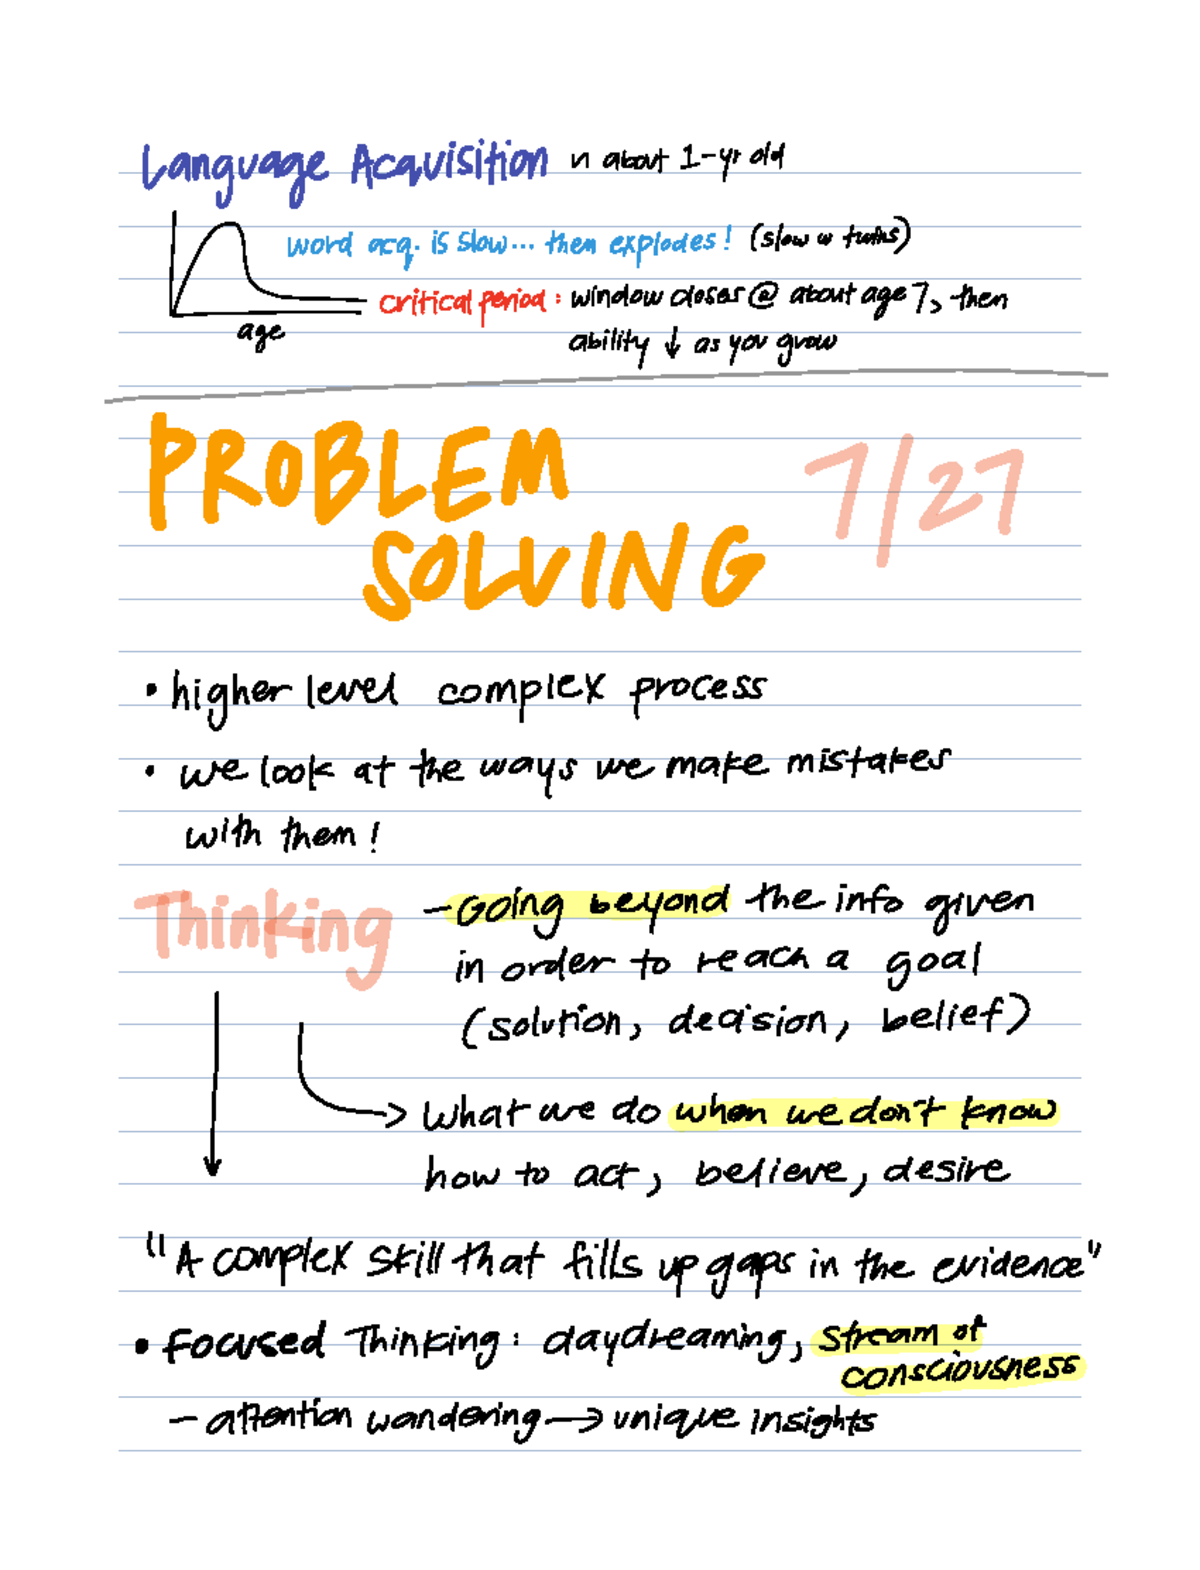 Language Acquisition n about 1-yr old
word acq. is slow... then explodes! (slow w twins)
critical period: window closes @ about age 7, then
age
ability ↓ as you grow
PROBLEM
SOLVING
7/27
• higher level complex process
• we look at the ways we make mistakes
with them!
Thinking - Going beyond the info given
in order to reach a goal
(solution, decision, belief)
→ What we do when we don't know
how to act, believe, desire
"A complex skill that fills up gaps in the evidence"
• Focused Thinking: daydreaming, stream of
consciousness
- attention wandering → unique insights